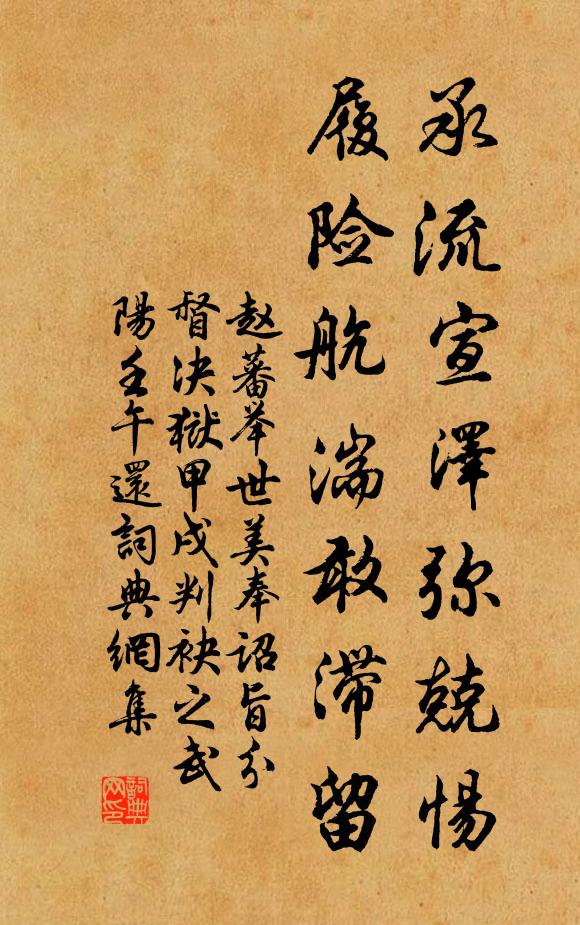 承流宣澤弥兢惕
履险航湍敢滞留
赵蕃举世美奉诏旨分
督决獄甲戌判袂之武
陽壬午還詞典網集
詞典网印